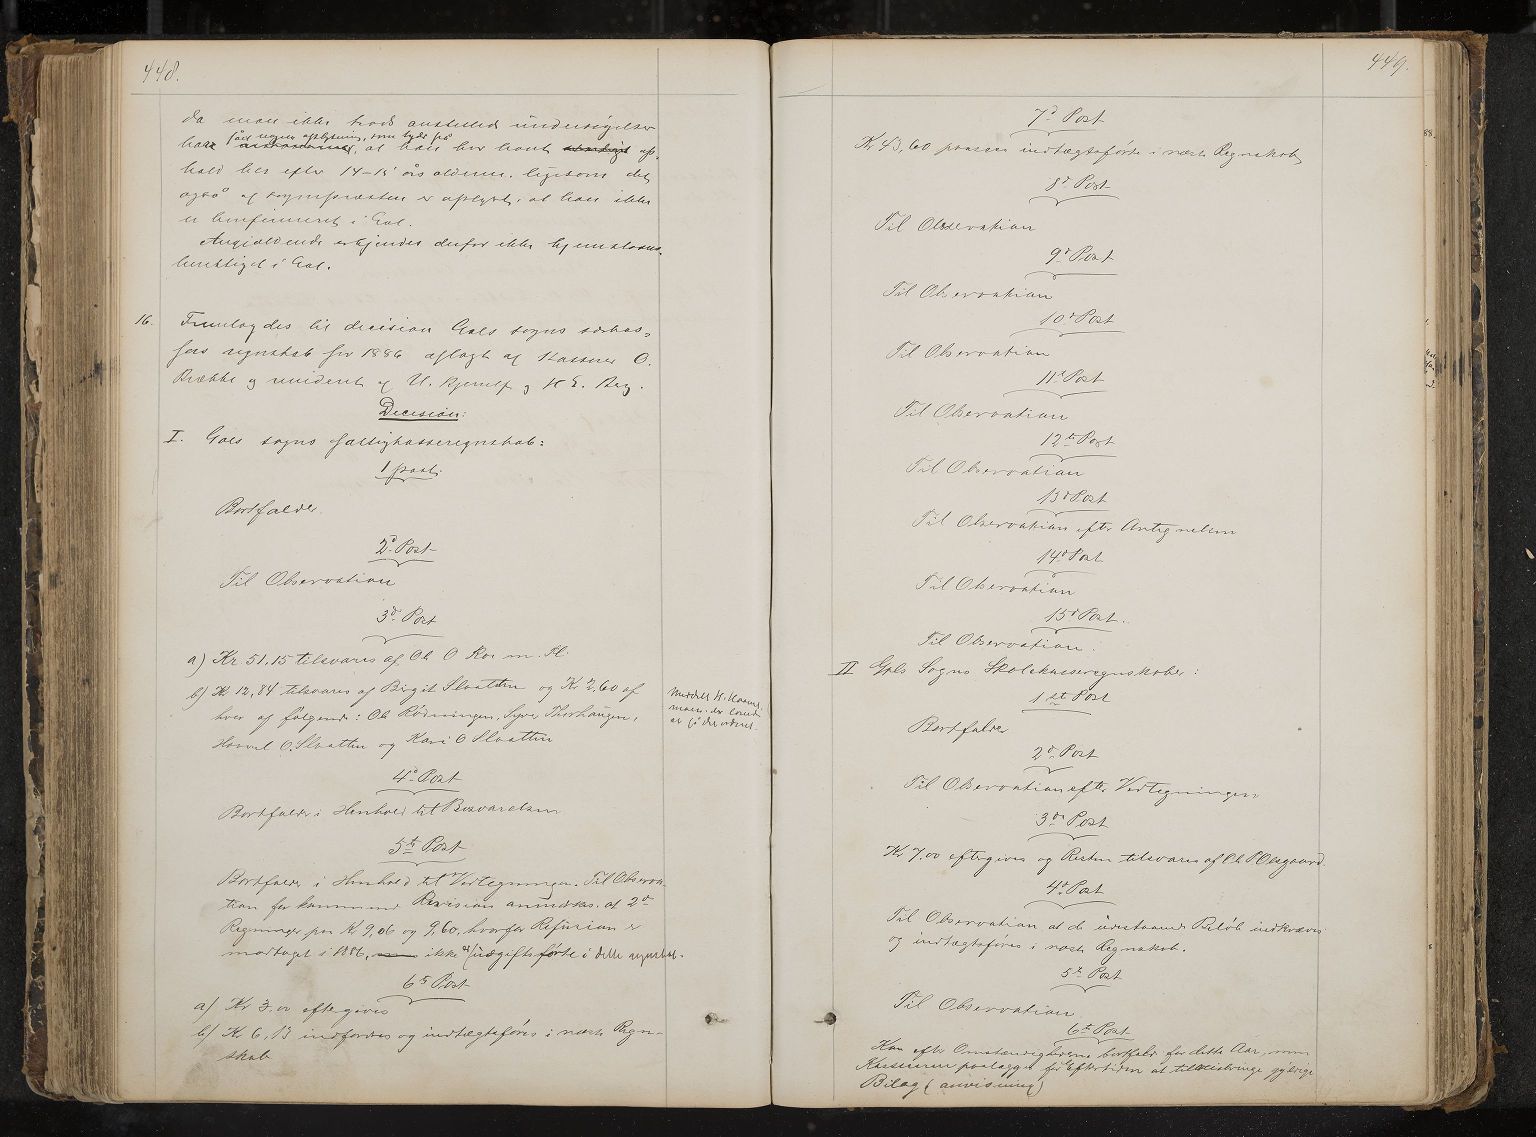 448.
da man ikke ved anstillede undersøgelser
har fået nogen oplysning, som tyder på, at han har havt op-
hold her efter 14-15 års alderen, ligesom det
også af sognepræsten er oplyst, at han ikke
er konfirmeret i Gol.
Angjældende erkjendes derfor ikke hjemstavns-
berettiget i Gol.
16. Fremlagdes til decision Gols sogns
regnskab for 1886 aflagt af Kasserer O.
Brække og revideret af
Decision:
I. Gols sogns fattigkasseregnskab:
1 post.
Bortfalder.
2d Post
Til Observation
3d Post
a) Kr 51,15 tilsvares af
b) Kr 12,84 tilsvares af Birgit Slaatten og Kr 2,60 af
hver af følgende: Ole Rødningen, Syver Thorhaugen,
O. Slaatten og Kari O Slaatten
er på det
4d Post
Bortfalder i Henhold til Besvarelsen
5te Post
Bortfalder i Henhold til Vertegningen. Til Observa-
tion for kommende Revision anmærkes at 2de
Regninger paa Kr 9,06 og 9,60, hvorfor Refusion er
modtaget i 1886, ikke er udgiftsførte i dette regnskab.
6te Post
a) Kr 3.00 eftergives
b) Kr 6,13 indfordres og indtægtsføres i næste Regn-
skab
449.
7d Post
Kr 43,60 paasees indtægtsførte i næste Regnskab
8d Post
Til Observation
9d Post
Til Observation
10d Post
Til Observation
11t Post
Til Observation
12te Post
Til Observation
13d Post
Til Observation efter Antegnelsen
14d Post
Til Observation
15d Post.
Til Observation.
II Gols Sogns Skolekasseregnskaber:
1ste Post
Bortfalder
2d Post
Til Observation efter Vertegningen
3die Post
Kr 7,00 eftergives og Resten tilsvares af Ole P Olsgaard.
4d Post
Til Observation at de udestaaende Beløb indkræves
og indtægtsføres i næste Regnskab.
5te Post
Til Observation
6te Post
Kan efter Omstændighederne bortfalde for dette Aar, men
Kassereren paalægges for Eftertiden at tilveiebringe gyldige
Bilag (anvisning)